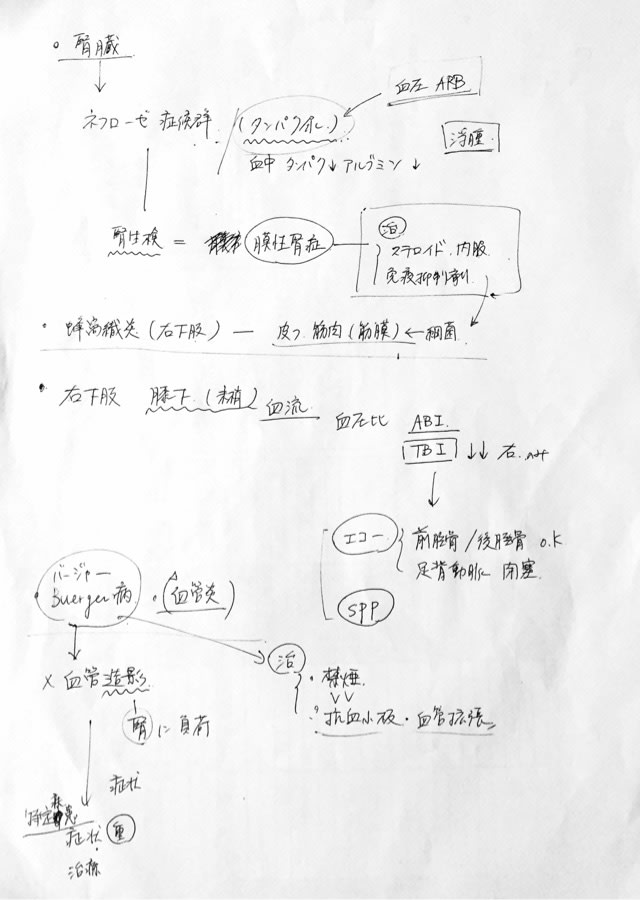 ・腎臓
血圧 ARB
ネフローゼ症候群 (タンパク尿)
血中 タンパク↓ アルブミン ↓
浮腫
腎生検 = 膜性腎症
治
ステロイド 内服
免疫抑制剤
・蜂窩織炎(右下肢) ― 皮フ 筋肉(筋膜) ← 細菌
・右下肢 膝下(末梢) 血流
血圧比 ABI
TBI ↓↓ 右
エコー 前脛骨/後脛骨 O.K
足背動脈 閉塞
SPP
バージャー
Buerger病 ・(血管炎)
治
・禁煙
・抗血小板・血管拡張
× 血管造影
腎に負荷
症状
症状 重
治療